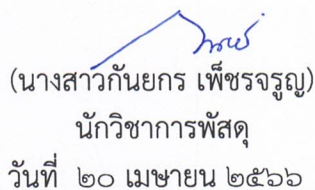 (นางสาวกันยกร เพ็ชรจรูญ)
นักวิชาการพัสดุ
วันที่ ๒๐ เมษายน ๒๕๖๖